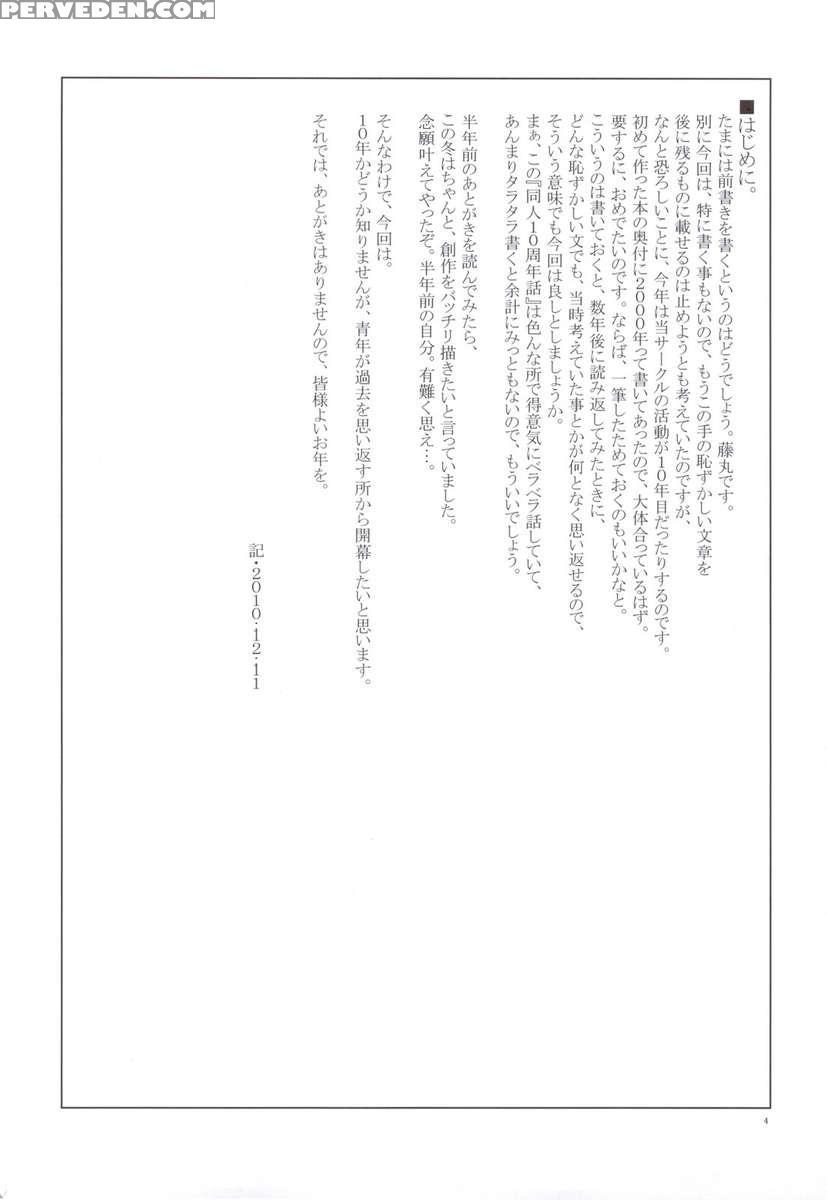 PERVEDEN.COM
■はじめに。
たまには前書きを書くというのはどうでしょう。藤丸です。
別に今回は、特に書く事もないので、もうこの手の恥ずかしい文章を
後に残るものに載せるのは止めようとも考えていたのですが、
なんと恐ろしいことに、今年は当サークルの活動が10年目だったりするのです。
初めて作った本の奥付に2000年って書いてあったので、大体合っているはず。
要するに、おめでたいのです。ならば、一筆したためておくのもいいかなと。
こういうのは書いておくと、数年後に読み返してみたときに、
どんな恥ずかしい文でも、当時考えていた事とかが何となく思い返せるので、
そういう意味でも今回は良しとしましょうか。
まぁ、この『同人10周年話』は色んな所で得意気にベラベラ話していて、
あんまりタラタラ書くと余計にみっともないので、もういいでしょう。
半年前のあとがきを読んでみたら、
この冬はちゃんと、創作をバッチリ描きたいと言っていました。
念願叶えてやったぞ。半年前の自分。有難く思え…。
そんなわけで、今回は。
10年かどうか知りませんが、青年が過去を思い返す所から開幕したいと思います。
それでは、あとがきはありませんので、皆様よいお年を。
記・2010・12・11
4